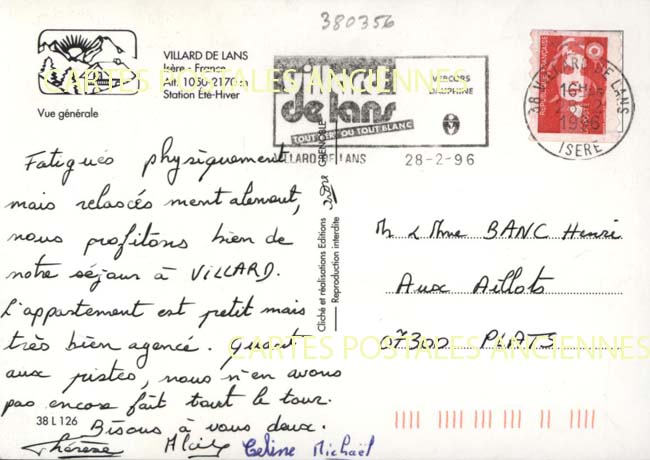 380356
VILLARD DE LANS
Isère - France
Alt. 1050-2170 m
Station Été-Hiver
Vue générale
VILLARD de lans
TOUT VERT OU TOUT BLANC
VERCORS
DAUPHINE
VILLARD DE LANS 28-2-96
38 VILLARD DE LANS
16H
28-2
1996
ISERE
Fatigués physiquement
mais relaxés mentalement,
nous profitons bien de
notre séjour à VILLARD.
L'appartement est petit mais
très bien agencé. quant
aux pistes, nous n'en avons
pas encore fait tout le tour.
Bisous à vous deux.
Thérèse Céline Michaël
38 L 126
GRENOBLE
Cliché et réalisations Editions
Reproduction interdite
M & Mme BANC Henri
Aux Aillots
07300 PLATS
CARTES POSTALES ANCIENNES
CARTES POSTALES ANCIENNES